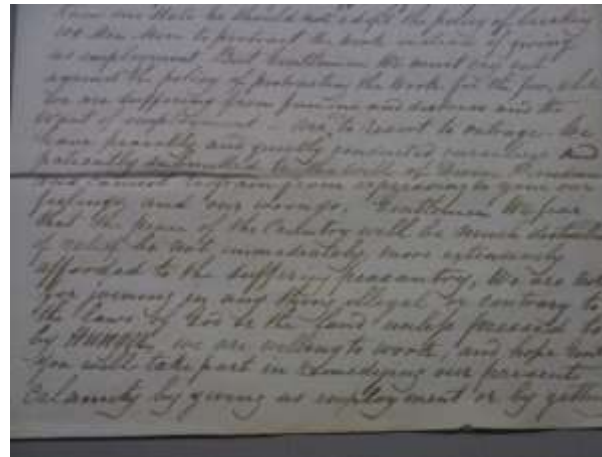 we should not adopt the policy of
100 men to protract the work instead of giving
us employment. But Gentlemen We must cry out
against the policy of protracting the Work for the few, while
we are suffering from famine and distress and the
want of employment to resort to outrage. We
have peaceably and quietly conducted ourselves and
patiently submitted to the will of
and cannot refrain from expressing to you our
feelings and our wrongs. Gentlemen We fear
that the peace of the Country will be much disturbed
if relief be not immediately more extensively
afforded to the suffering peasantry. We are not
for joining in any thing illegal or contrary to
the laws of God or the land unless pressed to
by HUNGER we are willing to work, and hope that
you will take part in remedying our present
Calamity by giving us employment or by getting